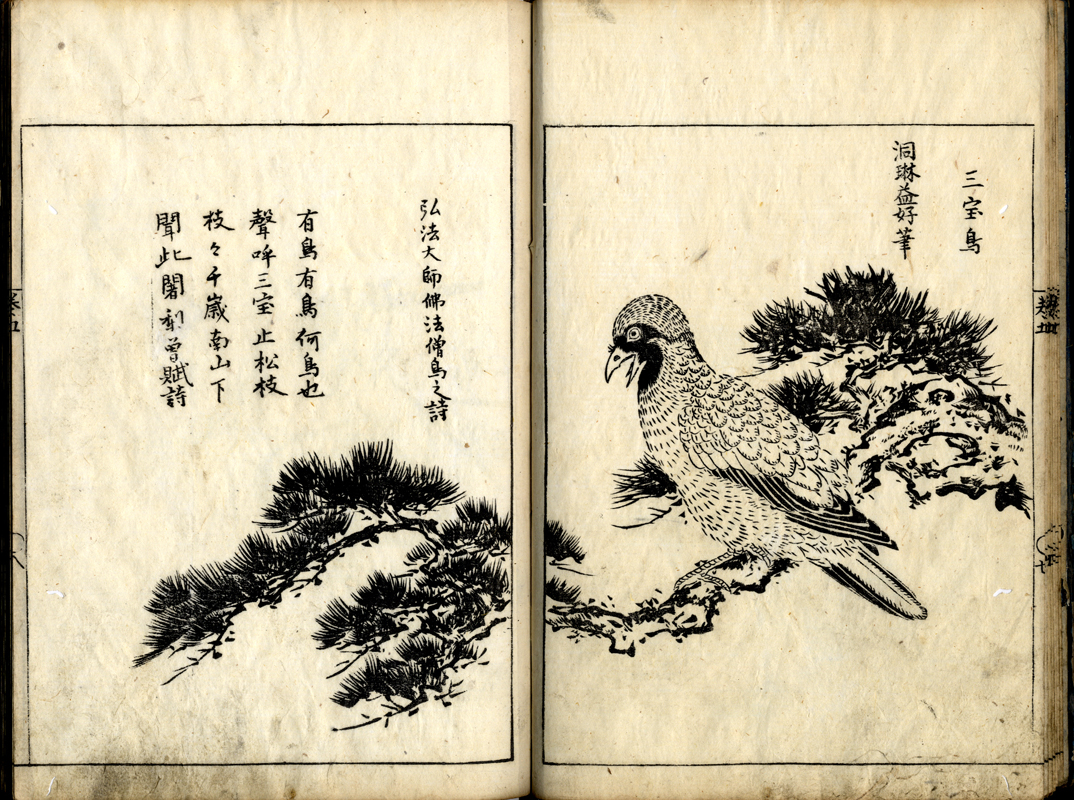 三宝鳥
洞琳益好筆
弘法大師佛法僧鳥之詩
有鳥有鳥何鳥也
聲呼三宝止松枝
枝々千歳南山下
聞此闍梨曽賦詩